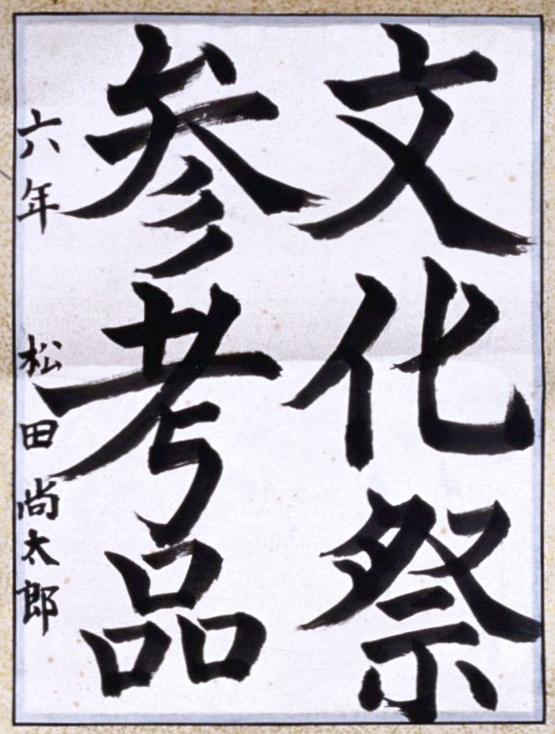 文化祭
参考品
六年 松田尚太郎